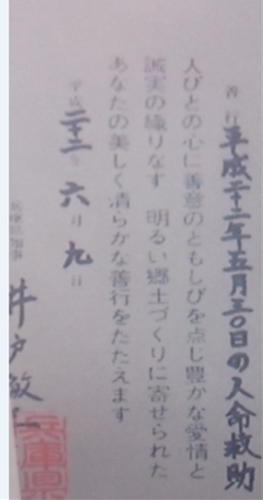 善行 平成二十二年五月三〇日の人命救助
人びとの心に善意のともしびを点じ豊かな愛情と
誠実の織りなす 明るい郷土づくりに寄せられた
あなたの美しく清らかな善行をたたえます
平成二十二年六月九日
兵庫県知事 井戸敏三
兵庫県